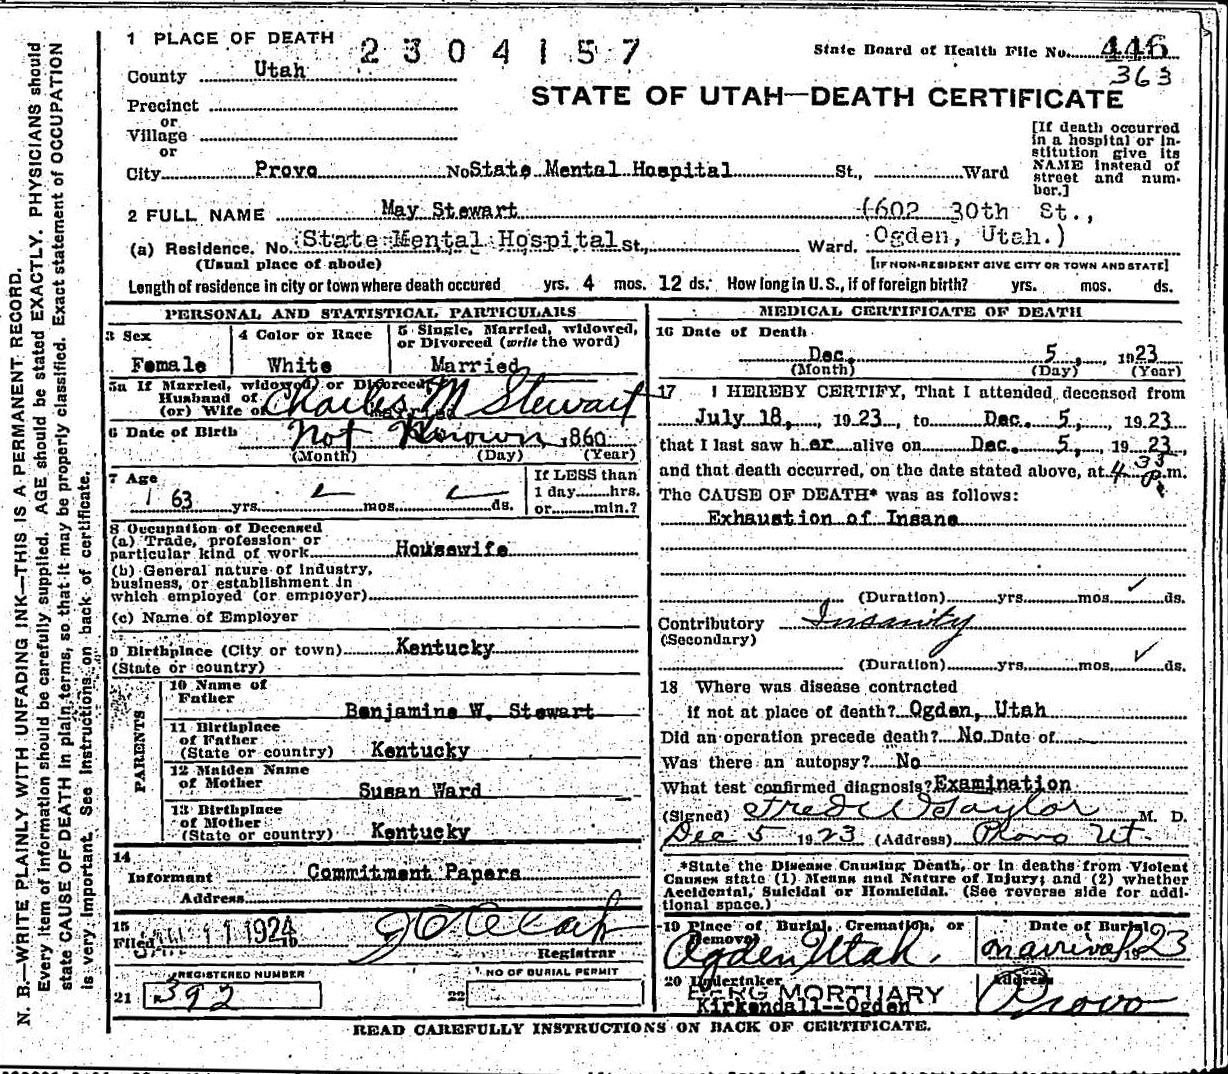 1 PLACE OF DEATH 2304157
State Board of Health File No. 446
363
County Utah
STATE OF UTAH—DEATH CERTIFICATE
Precinct
or
Village
or
City Provo No State Mental Hospital St., Ward
[If death occurred
in a hospital or in-
stitution give its
NAME instead of
street and num-
ber.]
2 FULL NAME May Stewart (602 30th St.,
(a) Residence, No. State Mental Hospital St., Ward. Ogden, Utah.)
(Usual place of abode) [IF NON-RESIDENT GIVE CITY OR TOWN AND STATE]
Length of residence in city or town where death occured yrs. 4 mos. 12 ds. How long in U.S., if of foreign birth? yrs. mos. ds.
PERSONAL AND STATISTICAL PARTICULARS
3 Sex
Female
4 Color or Race
White
5 Single, Married, widowed,
or Divorced (write the word)
Married
5a If Married, widowed, or Divorced
Husband of
(or) Wife of Charles M Stewart
6 Date of Birth Not Known 1860
(Month) (Day) (Year)
7 Age
63 yrs. mos. ds.
If LESS than
1 day hrs.
or min.?
8 Occupation of Deceased
(a) Trade, profession or
particular kind of work Housewife
(b) General nature of industry,
business, or establishment in
which employed (or employer)
(c) Name of Employer
9 Birthplace (City or town) Kentucky
(State or country)
PARENTS
10 Name of
Father
Benjamine W. Stewart
11 Birthplace
of Father
(State or country) Kentucky
12 Maiden Name
of Mother Susan Ward
13 Birthplace
of Mother
(State or country) Kentucky
14
Informant Commitment Papers
Address
15
Filed JAN 11 1924
Registrar
REGISTERED NUMBER
21 392
NO OF BURIAL PERMIT
22
MEDICAL CERTIFICATE OF DEATH
16 Date of Death
Dec. 5, 1923
(Month) (Day) (Year)
17 I HEREBY CERTIFY, That I attended deceased from
July 18, 1923, to Dec. 5, 1923
that I last saw her alive on Dec. 5, 1923,
and that death occurred, on the date stated above, at 4 35 P.m.
The CAUSE OF DEATH* was as follows:
Exhaustion of Insane
(Duration) yrs. mos. ds.
Contributory Insanity
(Secondary)
(Duration) yrs. mos. ds.
18 Where was disease contracted
if not at place of death? Ogden, Utah
Did an operation precede death? No Date of
Was there an autopsy? No
What test confirmed diagnosis? Examination
(Signed) Fred W Taylor M. D.
Dec 5 1923 (Address) Provo Ut.
*State the Disease Causing Death, or in deaths from Violent
Causes state (1) Means and Nature of Injury; and (2) whether
Accidental, Suicidal or Homicidal. (See reverse side for addi-
tional space.)
19 Place of Burial, Cremation, or
Removal
Ogden Utah.
Date of Burial
on arrival 1923
20 Undertaker
BERG MORTUARY
Kirkendall--Ogden
Address
Provo
READ CAREFULLY INSTRUCTIONS ON BACK OF CERTIFICATE.
N. B.—WRITE PLAINLY WITH UNFADING INK—THIS IS A PERMANENT RECORD.
Every item of information should be carefully supplied. AGE should be stated EXACTLY. PHYSICIANS should
state CAUSE OF DEATH in plain terms, so that it may be properly classified. Exact statement of OCCUPATION
is very important. See instructions on back of certificate.